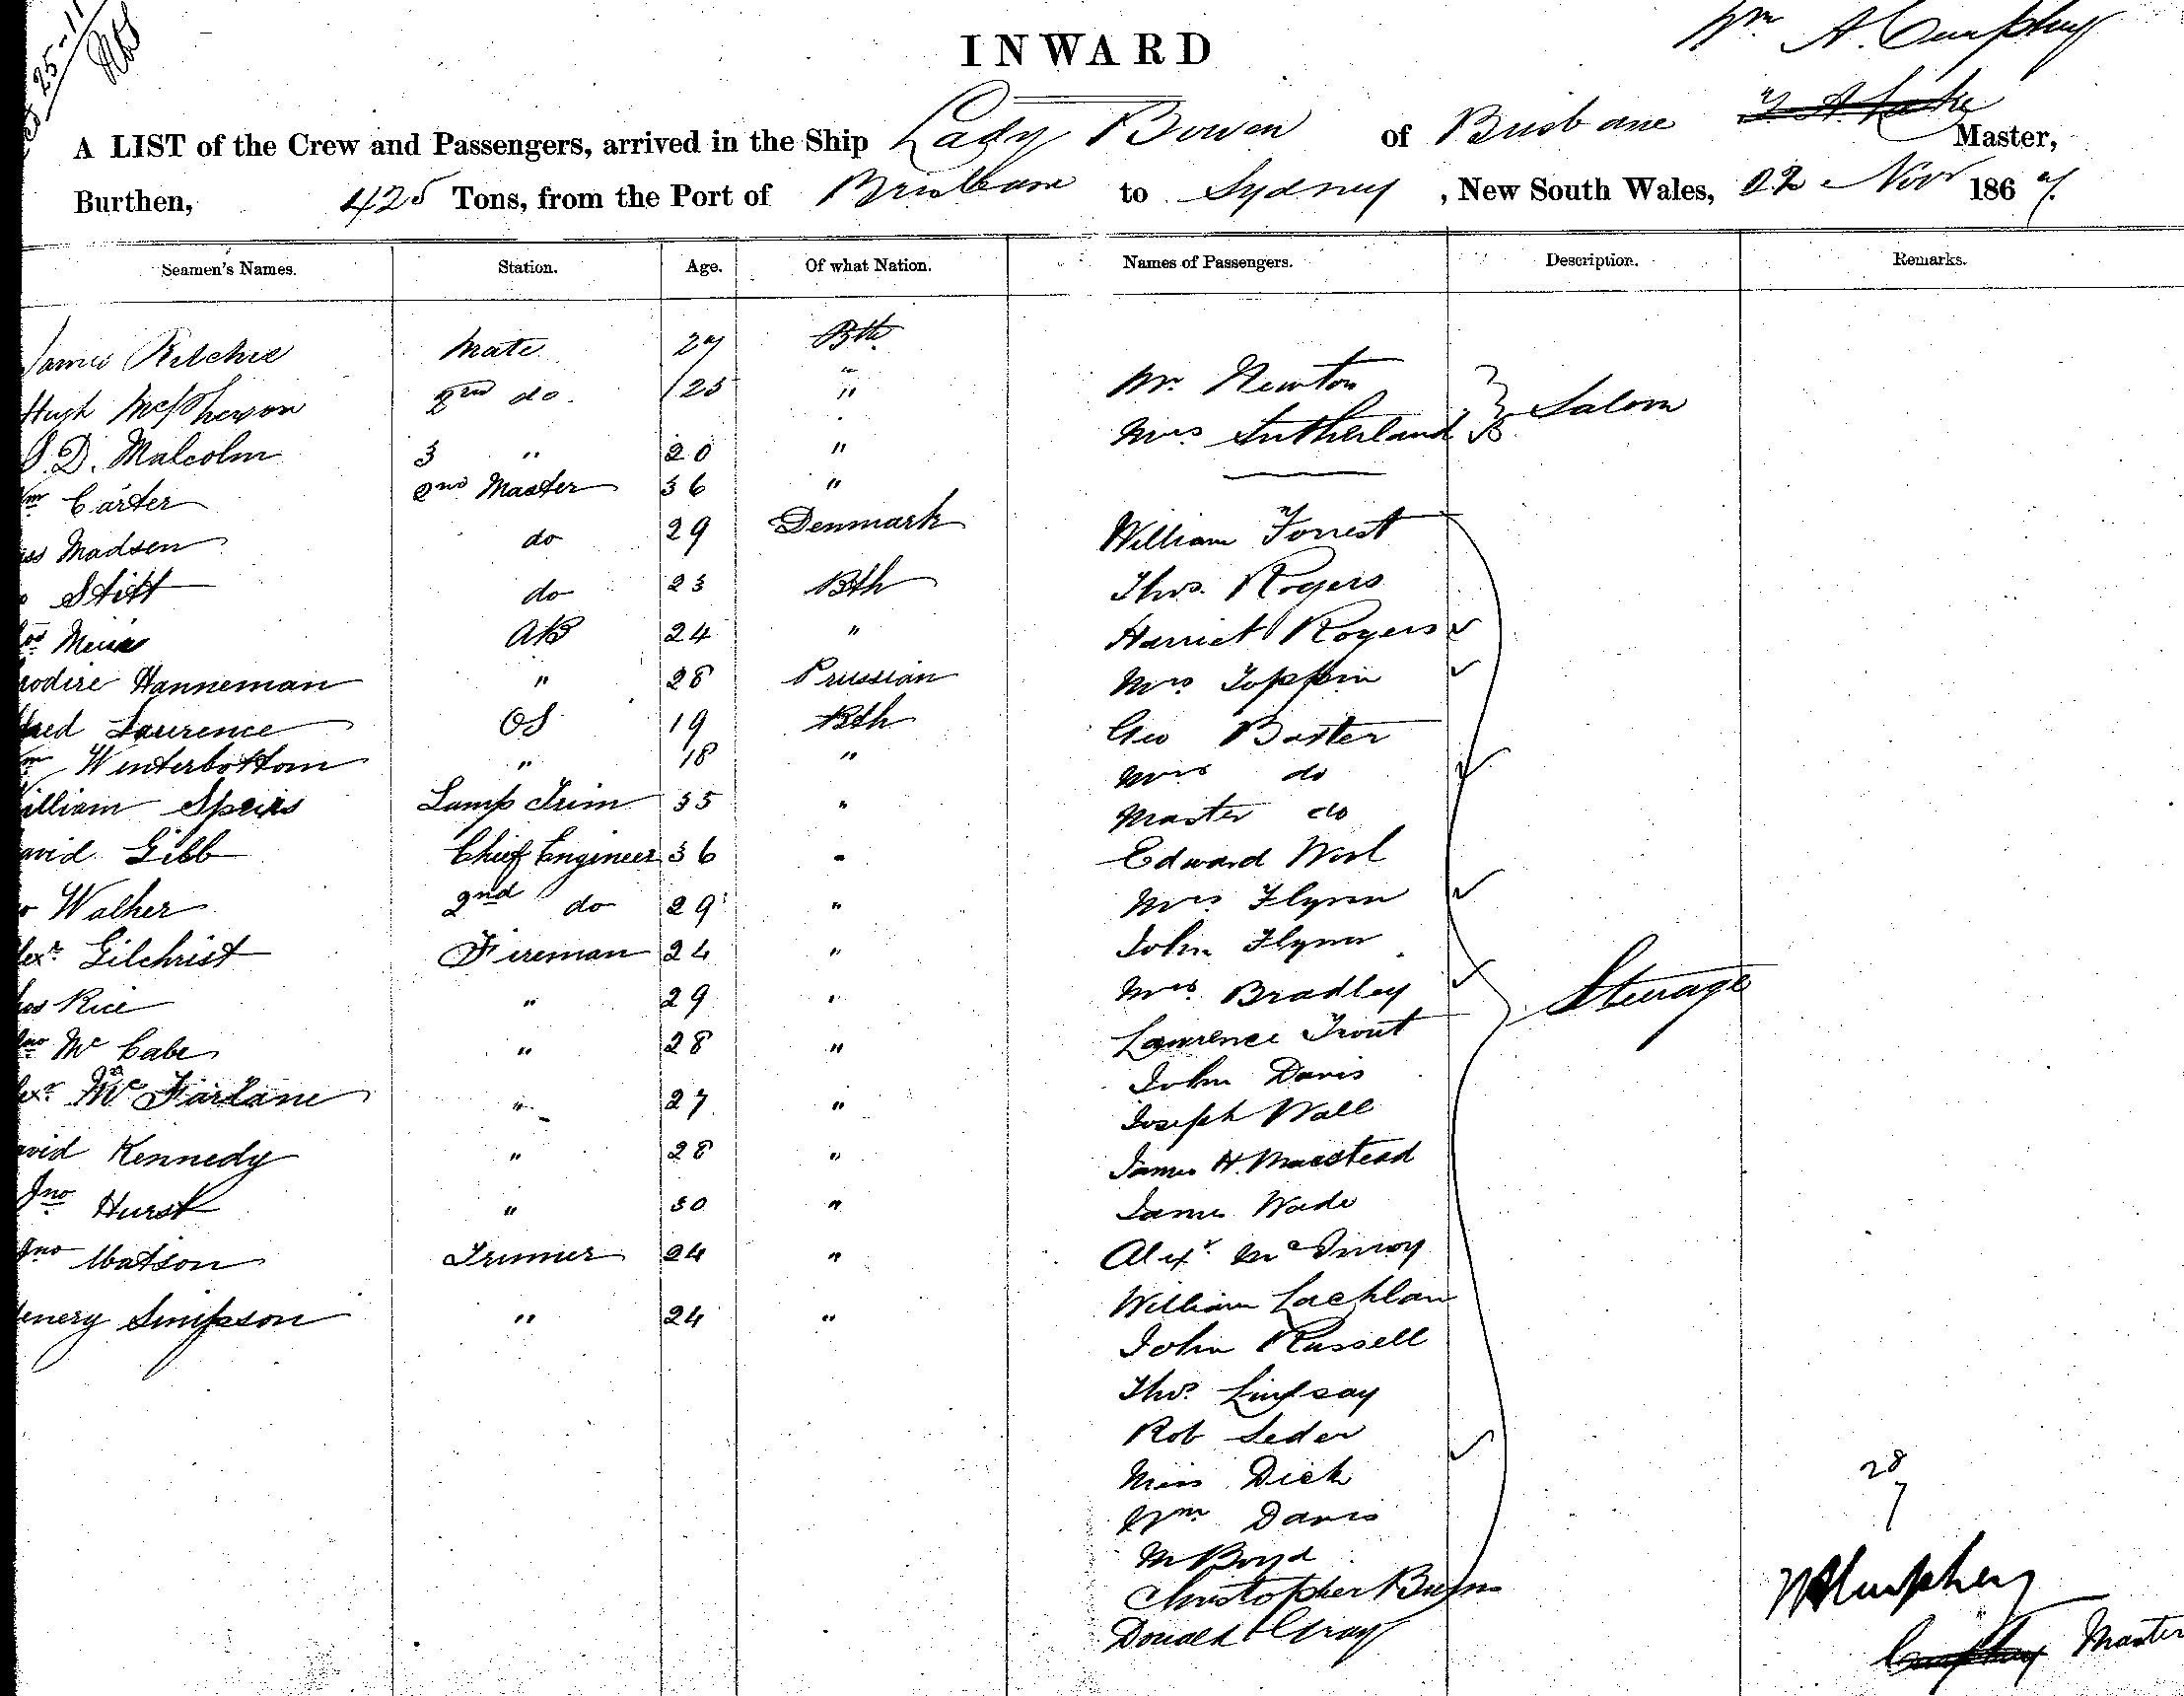 25-11
INWARD
Wm A. Cumphey
A LIST of the Crew and Passengers, arrived in the Ship Lady Bowen of Brisbane Master,
Burthen, 425 Tons, from the Port of Brisbane to Sydney, New South Wales, 22 Nov 1867.
Seamen's Names. Station. Age. Of what Nation. Names of Passengers. Description. Remarks.
James Ritchie Mate 27 Bth
Hugh McPherson 2nd do. 25 "
Mr. Newton
Saloon
Mrs Sutherland
D. Malcolm 3 " 20 "
Wm Carter 2nd Master 36 "
Madsen do 29 Denmark
William Forrest
Stitt do 23 Bth
Thos. Rogers
AB 24 "
Harriet Rogers
Hanneman " 28 Prussian
Mrs Toppin
Laurence OS 19 Bth
Geo Baxter
Winterbottom " 18 "
Mrs do
William Speirs Lamp Trim 35 "
Master do
David Gibb Chief Engineer 36 "
Edward
Walker 2nd do 29 "
Mrs Flynn
Alexr Gilchrist Fireman 24 "
John Flynn
Rice " 29 "
Mrs Bradley
Steerage
Jno McCabe " 28 "
Lawrence Trout
John Davis
Alexr McFarlane " 27 "
Joseph Wall
David Kennedy " 28 "
James H. Macstead
Jno Hurst " 30 "
James Wade
Jno Watson Trimmer 24 "
Alexr McInroy
William Lachlan
Henery Simpson " 24 "
John Russell
Thos. Lindsay
Rob Seder
Miss Dick
28
7
Wm Davis
M Boyd
Christopher Burn
Donald Gray
Master